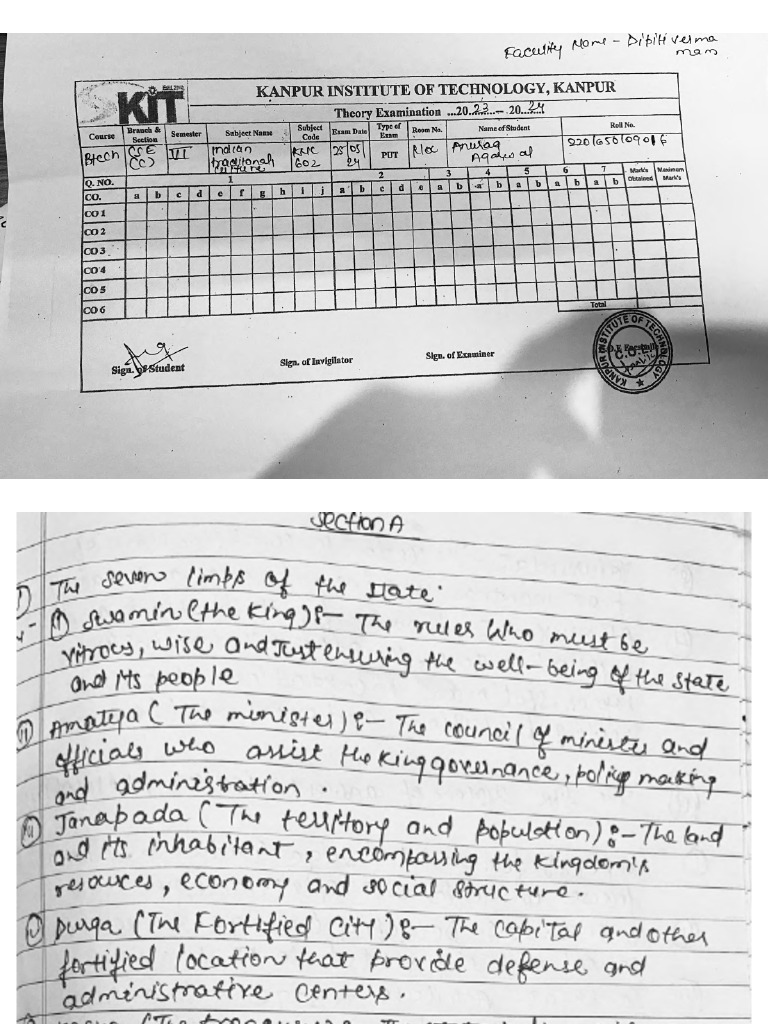 Faculty Name - Dipiti verma
mam
KIT
KANPUR INSTITUTE OF TECHNOLOGY, KANPUR
Theory Examination ...2023...- 2024
Course Branch & Section Semester Subject Name Subject Code Exam Date Type of Exam Room No. Name of Student Roll No.
Btech CSE (C) VI Indian traditional culture KNC 602 25/05/24 PUT Anurag Agarwal
Q. NO. 1 2 3 4 5 6 7 Mark's Obtained Maximum Mark's
CO. a b c d e f g h i j a b c d e a b a b a b a b a b
CO 1
CO 2
CO 3
CO 4
CO 5
CO 6
Total
Sign. of Student Sign. of Invigilator Sign. of Examiner
KANPUR INSTITUTE OF TECHNOLOGY
C.O.E
Section A
1) The seven limbs of the state.
(i) Swamin (the King) :- The ruler who must be
vitrous, wise and Just ensuring the well-being of the state
and its people
(ii) Amatya ( The minister) :- The council of minister and
officials who assist the King governance, policy making
and administration.
(iii) Janapada ( The territory and population) :- The land
and its inhabitant, encompassing the kingdom's
resources, economy and social structure.
(iv) Durga (The Fortified City) :- The capital and other
fortified location that provide defense and
administrative centers.